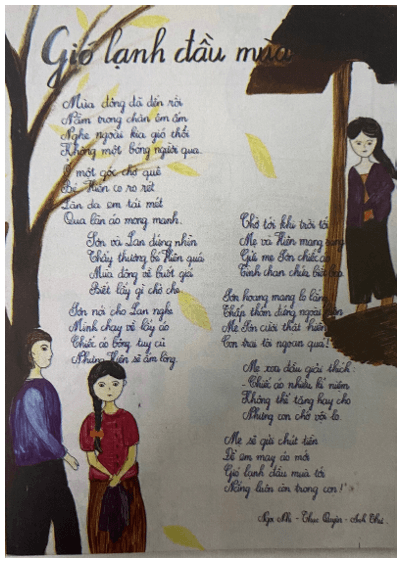 Gió lạnh đầu mùa
Mùa đông đã đến rồi
Nằm trong chăn êm ấm
Nghe ngoài kia gió thổi
Không một bóng người qua.
Ở một góc chợ quê
Bé Hiên co ro rét
Làn da em tái mét
Qua làn áo mong manh.
Sơn và Lan đứng nhìn
Thấy thương bé Hiên quá
Mùa đông về buốt giá
Biết lấy gì chở che
Sơn nói cho Lan nghe
Mình chạy về lấy áo
Chiếc áo bông tuy cũ
Nhưng Hiên sẽ ấm lòng.
Chờ tới khi trời tối
Mẹ và Hiên mang sang
Gửi mẹ Sơn chiếc áo
Tình chan chứa biết bao.
Sơn hoang mang lo lắng
Thấp thỏm đứng ngoài hiên
Mẹ Sơn cười thật hiền
Con trai tôi ngoan quá!
Mẹ xoa đầu giải thích:
- Chiếc áo nhiều kỉ niệm
Không thể tặng hay cho
Nhưng con chớ vội lo.
Mẹ sẽ gửi chút tiền
Để em may áo mới
Gió lạnh đầu mùa tới
Nắng luôn còn trong con!"
Nhi - Thục Quyên - Anh Thư.